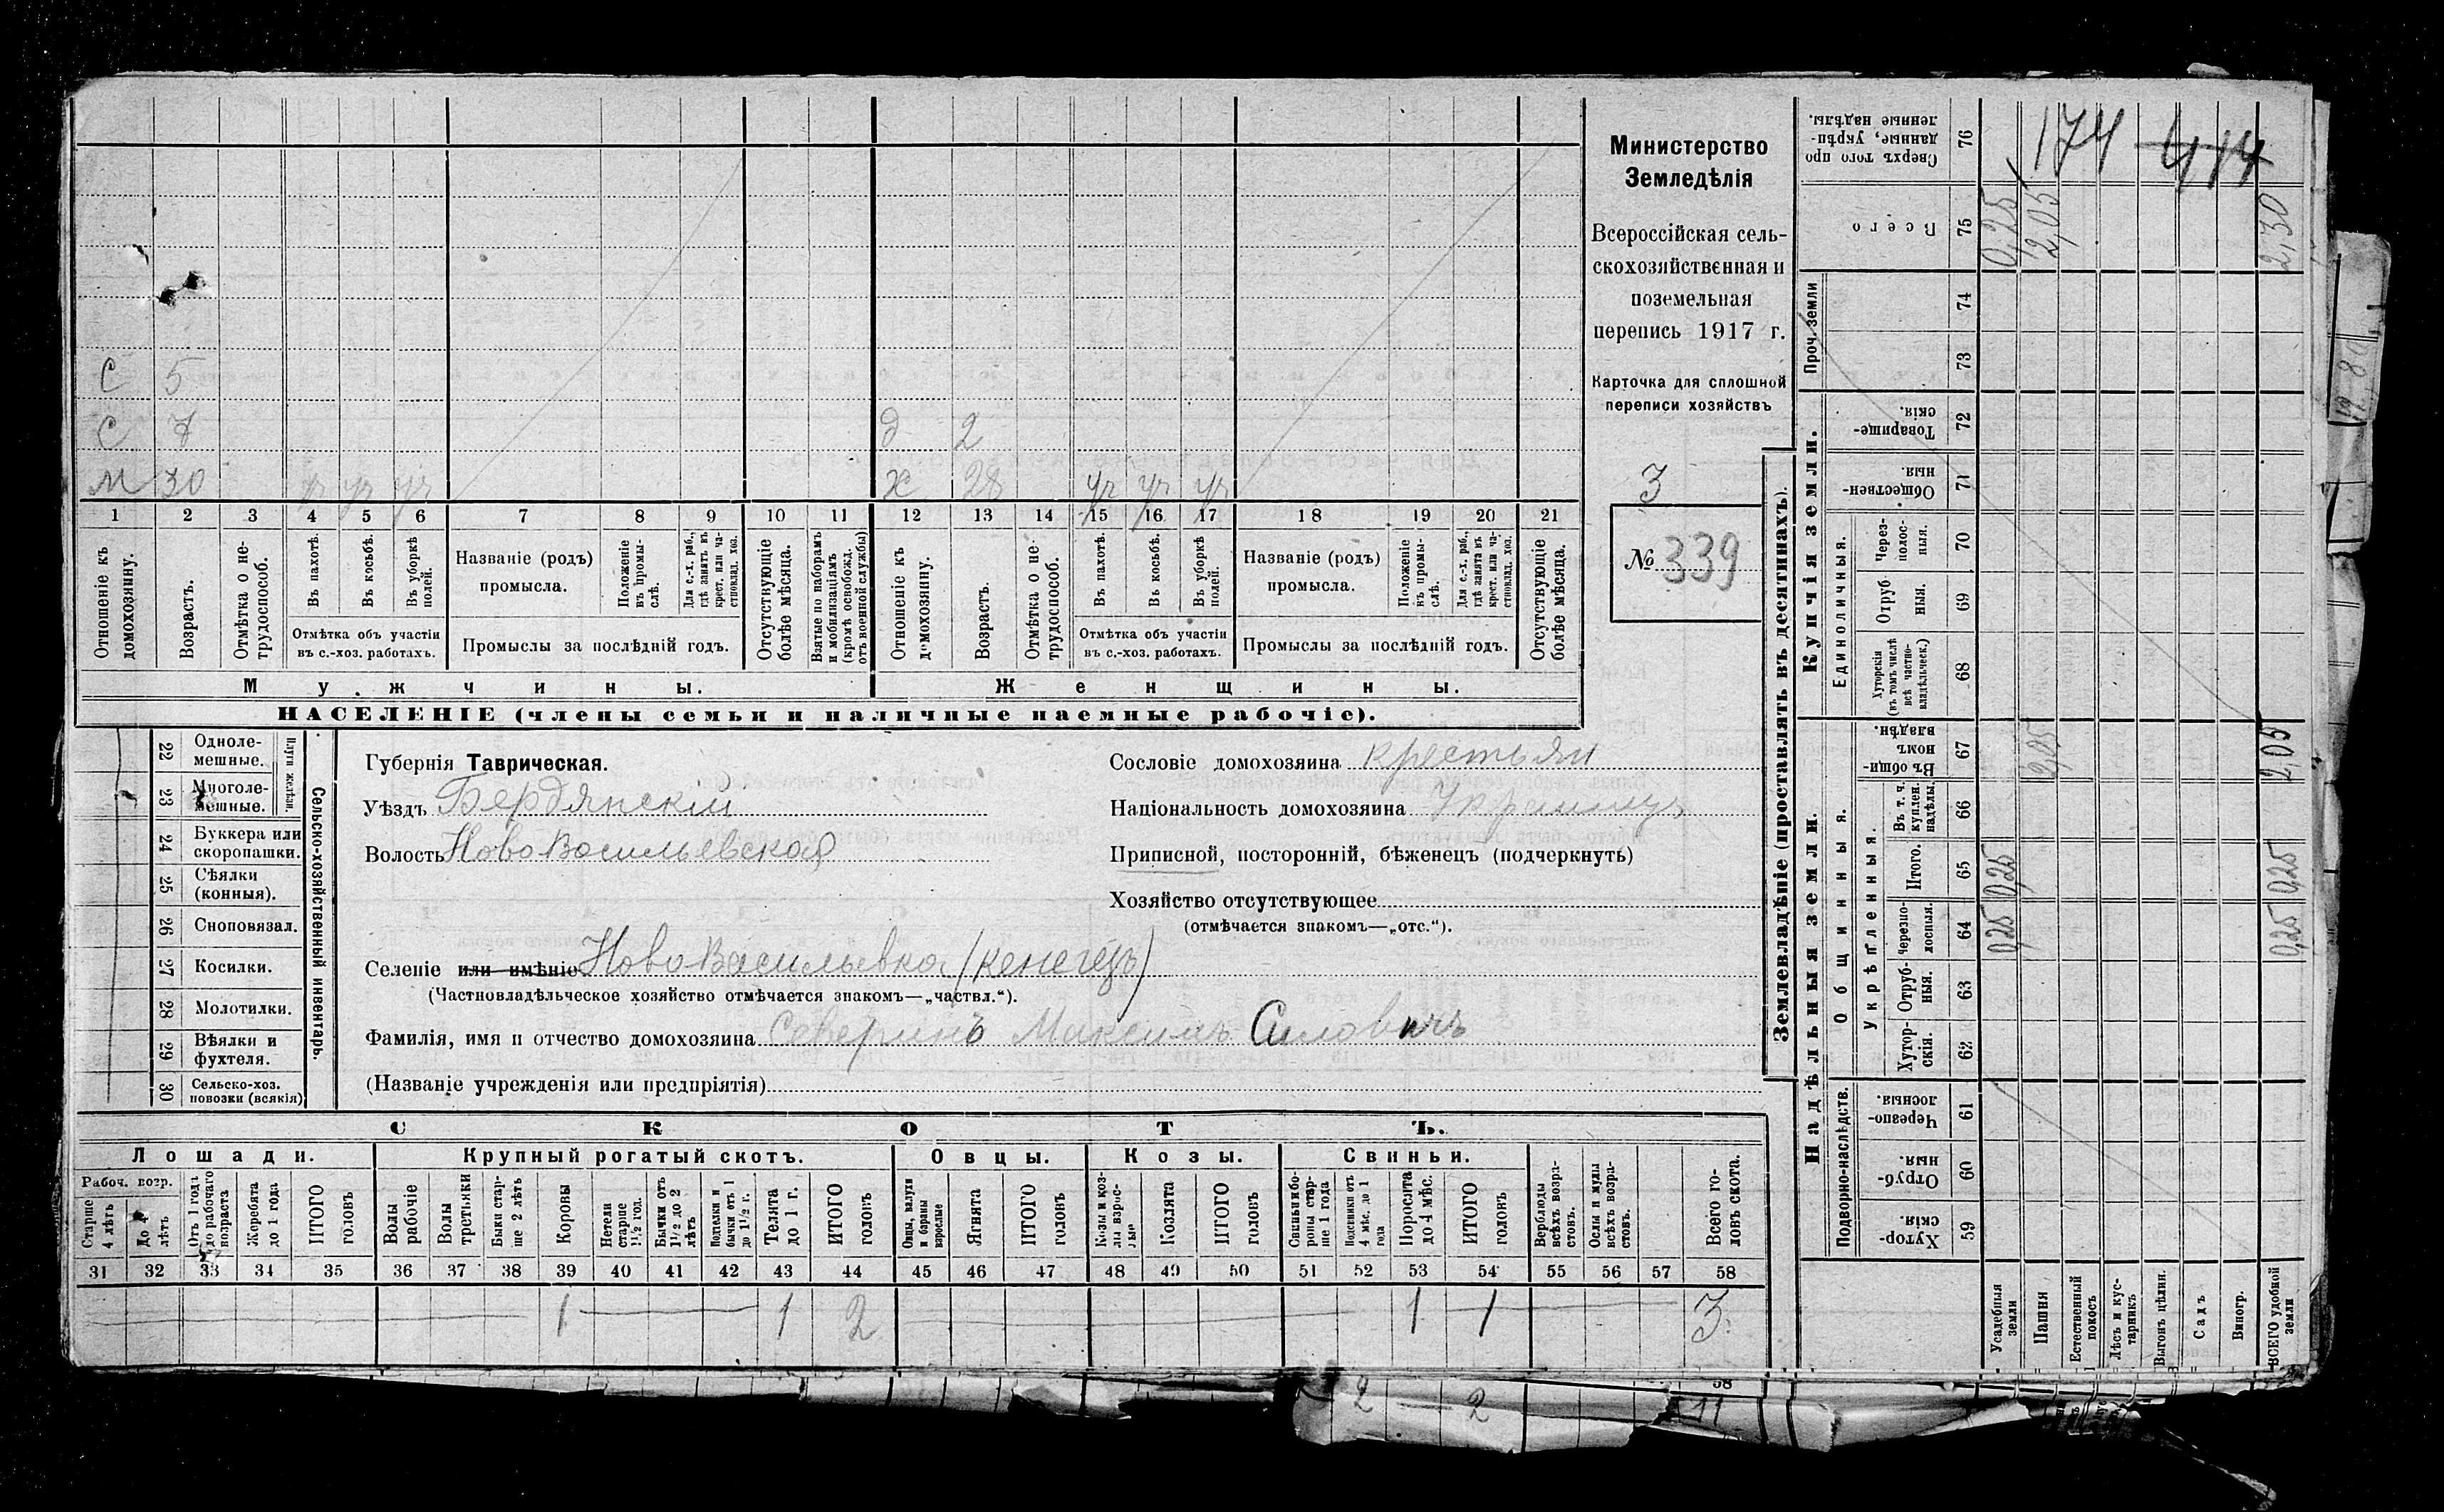 С 5
С 7 д 2
М 30 уч уч уч ж 28 уч уч уч
1 2 3 4 5 6 7 8 9 10 11 12 13 14 15 16 17 18 19 20 21
Отношеніе къ домохозяину.
Возрастъ.
Отмѣтка о не-
трудоспособ.
Въ пахотѣ.
Въ косьбѣ.
Въ уборкѣ полей.
Отмѣтка объ участіи
въ с.-хоз. работахъ.
Названіе (родъ)
промысла.
Положеніе въ промы-
слѣ.
Для с.-х. раб.,
гдѣ занятъ въ
крест. или ча-
стновлад. хоз.
Промыслы за послѣдній годъ.
Отсутствующіе
болѣе мѣсяца.
Взятые по наборамъ
и мобилизаціямъ
(кромѣ освобожд.
отъ военной службы)
Отношеніе къ
домохозяину.
Возрастъ.
Отмѣтка о не-
трудоспособ.
Въ пахотѣ.
Въ косьбѣ.
Въ уборкѣ
полей.
Отмѣтка объ участіи
въ с.-хоз. работахъ.
Названіе (родъ)
промысла.
Положеніе
въ промы-
слѣ.
Для с.-х. раб.,
гдѣ занята въ
крест. или ча-
стновлад. хоз.
Промыслы за послѣдній годъ.
Отсутствующіе
болѣе мѣсяца.
Мужчины. Женщины.
НАСЕЛЕНІЕ (члены семьи и наличные наемные рабочіе).
Министерство
Земледѣлія
Всероссійская сель-
скохозяйственная и
поземельная
перепись 1917 г.
Карточка для сплошной
переписи хозяйствъ
3
№ 339
22 Одноле-
мешные.
23 Многоле-
мешные.
Плуги желѣзн.
24 Буккера или
скоропашки.
25 Сѣялки
(конныя).
26 Сноповязал.
27 Косилки.
28 Молотилки.
29 Вѣялки и
фухтеля.
30 Сельско-хоз.
повозки (всякія)
Сельско-хозяйственный инвентарь.
Губернія Таврическая.
Уѣздъ Бердянскій
Волость НовоВасильевская
Сословіе домохозяина крестьян
Національность домохозяина Украинецъ
Приписной, посторонній, бѣженец (подчеркнуть)
Хозяйство отсутствующее
(отмѣчается знакомъ—„отс.“).
Селеніе или имѣніе НовоВасильевка (Кенегезъ)
(Частновладѣльческое хозяйство отмѣчается знакомъ—„частвл.“).
Фамилія, имя и отчество домохозяина Северинъ Максимъ Силовичъ
(Названіе учрежденія или предпріятія)
СКОТЪ.
Лошади. Крупный рогатый скотъ. Овцы. Козы. Свиньи.
Рабоч. возр.
Старше
4 лѣтъ
До 4
лѣтъ
Отъ 1 года
до рабочаго
возраста
Жеребята
до 1 года
ИТОГО
головъ
Волы
рабочіе
Волы
третьяки
Быки стар-
ше 2 лѣтъ
Коровы
Нетели
старше
1½ год.
Бычки отъ
1½ до 2
лѣтъ
Нетелки и
бычки отъ 1
до 1½ г.
Телята
до 1 г.
ИТОГО
головъ
Овцы, валухи
и бараны
взрослые
Ягнята
ИТОГО
головъ
Козы и коз-
лы взрос-
лые
Козлята
ИТОГО
головъ
Свиньи и бо-
ровы стар-
ше 1 года
Подсвинки отъ
4 мѣс. до 1
года
Поросята
до 4 мѣс.
ИТОГО
головъ
Верблюды
всѣхъ возра-
стовъ.
Ослы и мулы
всѣхъ возра-
стовъ.
Всего го-
ловъ скота.
31 32 33 34 35 36 37 38 39 40 41 42 43 44 45 46 47 48 49 50 51 52 53 54 55 56 57 58
1 1 2 1 1 3
Землевладѣніе (проставлять въ десятинахъ).
Надѣльныя земли. Купчія земли. Проч. земли
Подворно-наслѣдств. Общинныя. Укрѣпленныя. Единоличныя.
59 Хутор-
скія.
60 Отруб-
ныя.
61 Черезпо-
лосныя.
62 Хутор-
скія.
63 Отруб-
ныя.
64 Черезпо-
лосныя.
65 Итого.
66 Въ т. ч.
куплен.
надѣлы.
67 Въ общи-
номъ
владѣн.
68 Хуторскія
(въ томъ числѣ
всѣ частно-
владѣльческ.)
69 Отруб-
ныя.
70 Через-
полос-
ныя.
71 Обществен-
ныя.
72 Товарище-
скія.
73
74
75 Всего
76 Сверхъ того про
данные, укрѣп-
ленные надѣлы.
Усадебныя
земли 0,25 0,25 0,25
Пашня 2,05 2,05
Естественный
покосъ
Лѣсъ и кус-
тарникъ
Выгонъ цѣлин.
Садъ
Виногр.
ВСЕГО удобной
земли 0,25 0,25 2,05 2,30
174 414
58
2 2 11